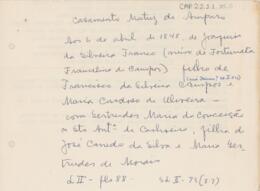 CAP 22.2.1.
Casamento Matriz de Amparo
Aos 6 de abril de 1848, de Joaquim
da Silveira Franco (neto de Fortunata
Francelina de Campos) filho de
Francisco da Silveira Campos e
Maria Cardoso de Oliveira —
com Gertrudes Maria da Conceição
n. Sto Antº da Cachoeira, filha de
José Canedo da Silva e Maria Ger-
trudes de Morais
L II - fls 88. — SL II - 75 (87)